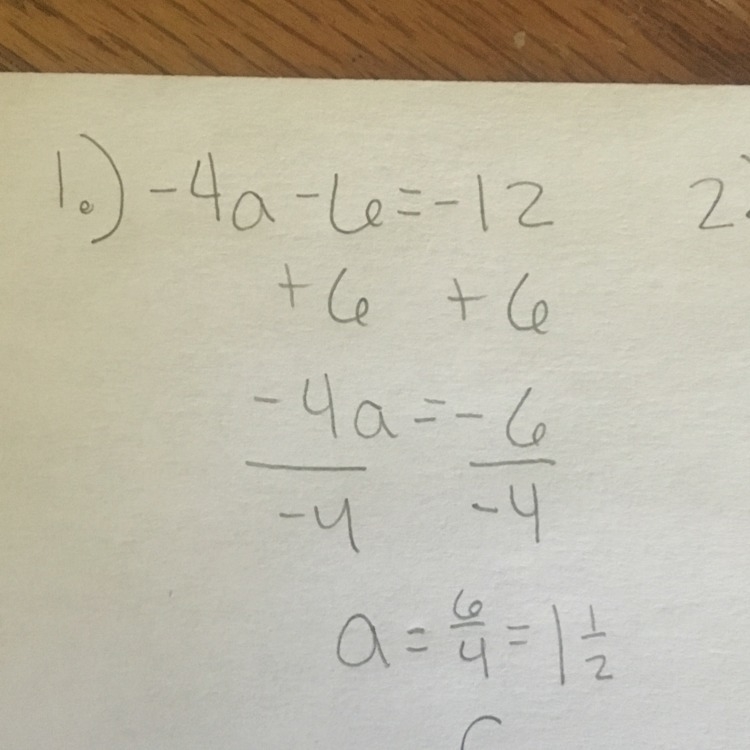 1.) -4a - 6 = -12
2.
+6 +6
-4a = -6
-4 -4
a = 6/4 = 1 1/2